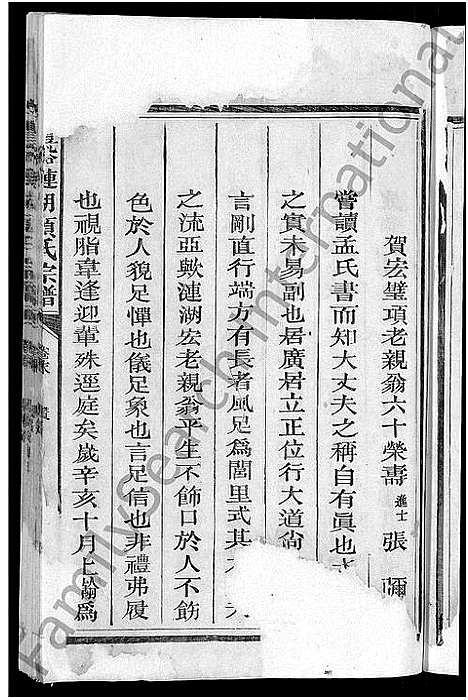 賀宏璧項老親翁六十榮壽 進士 張
嘗讀孟氏書而知大丈夫之稱自有眞也
之實未易副也居廣居立正位行大道尙
言剛直行端方有長者風足爲閭里式其
之流亞歟漣湖宏老親翁平生不飾口於人不飭
色於人貌足憚也儀足象也言足信也非禮弗履
也視脂韋逢迎輩殊逕庭矣歲辛亥十月上澣爲
漣湖項氏宗譜
FamilySearch International